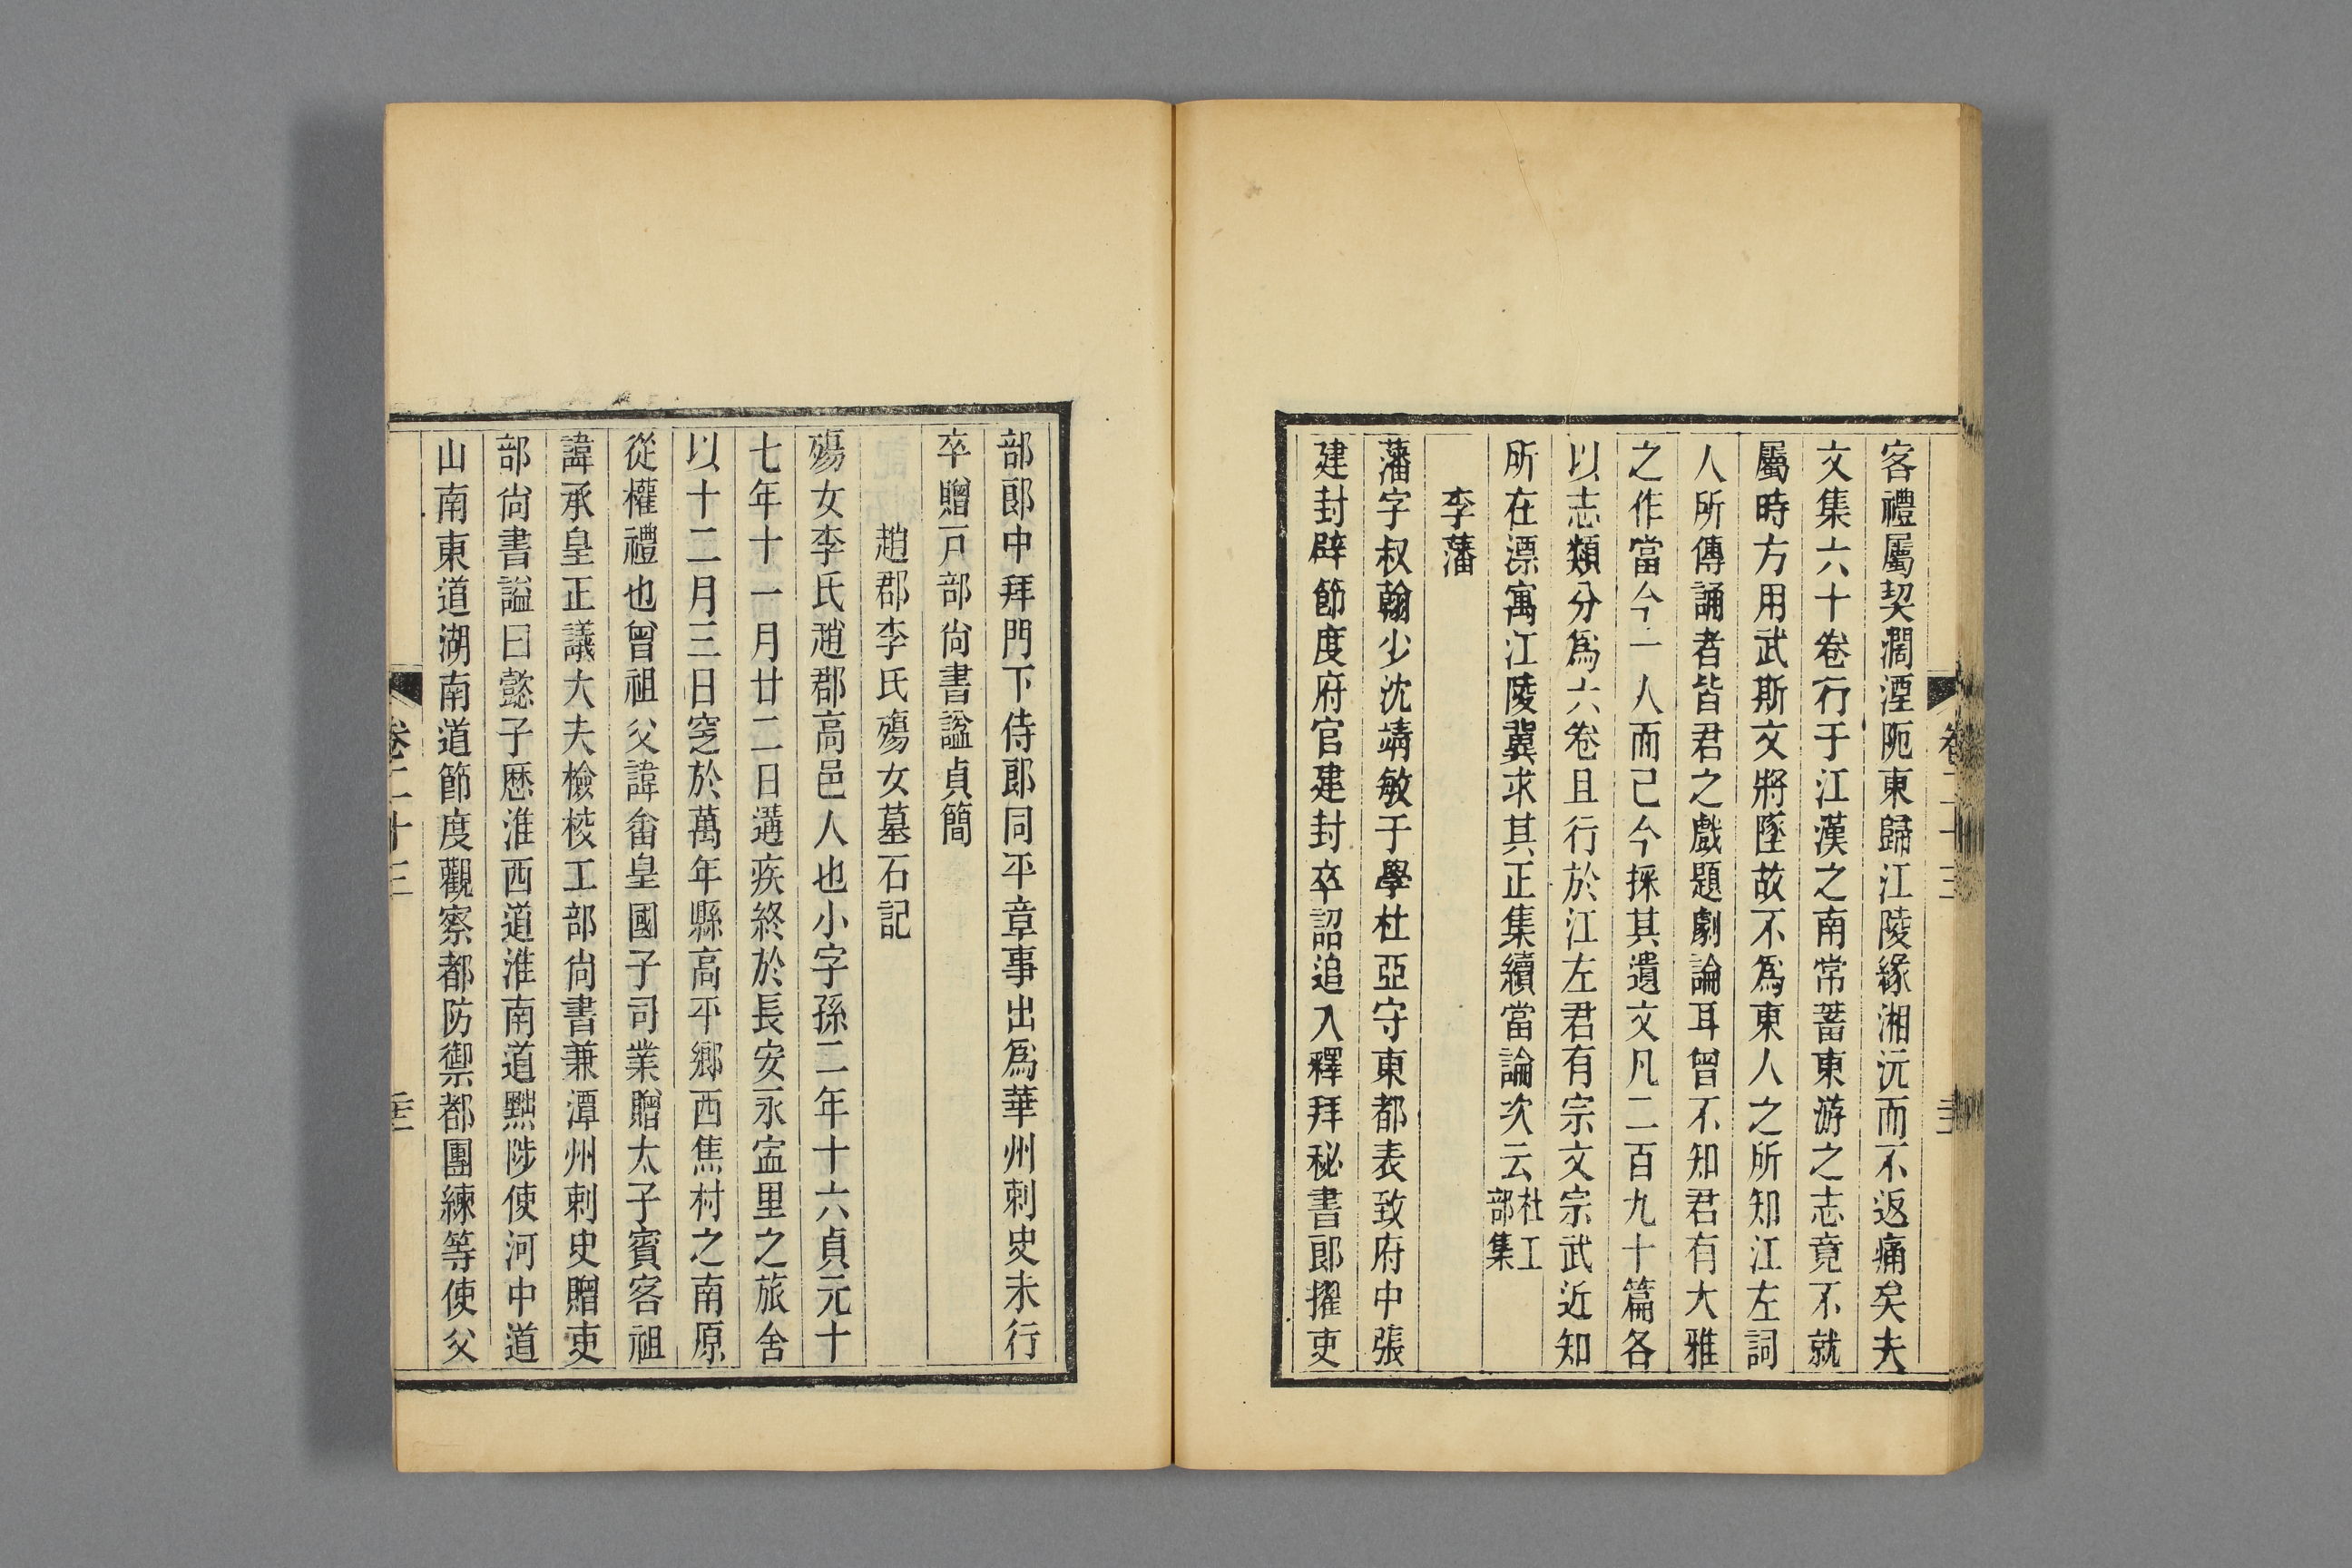 客禮屬契濶湮阨東歸江陵緣湘沅而不返痛矣夫
文集六十卷行于江漢之南常蓄東游之志竟不就
屬時方用武斯文將墜故不爲東人之所知江左詞
人所傳誦者皆君之戲題劇論耳曾不知君有大雅
之作當今一人而已今採其遺文凡二百九十篇各
以志類分爲六卷且行於江左君有宗文宗武近知
所在漂寓江陵冀求其正集續當論次云杜工部集
李藩
藩字叔翰少沈靖敏于學杜亞守東都表致府中張
建封辟節度府官建封卒詔追入釋拜秘書郎擢吏
部郎中拜門下侍郎同平章事出爲華州刺史未行
卒贈戸部尙書謚貞簡
趙郡李氏殤女墓石記
殤女李氏趙郡高邑人也小字孫二年十六貞元十
七年十一月廿二日遘疾終於長安永寍里之旅舍
以十二月三日窆於萬年縣高平鄉西焦村之南原
從權禮也曾祖父諱畬皇國子司業贈太子賓客祖
諱承皇正議大夫檢挍工部尙書兼潭州刺史贈吏
部尙書謚曰懿子歷淮西道淮南道黜陟使河中道
山南東道湖南道節度觀察都防禦都團練等使父
卷二十三